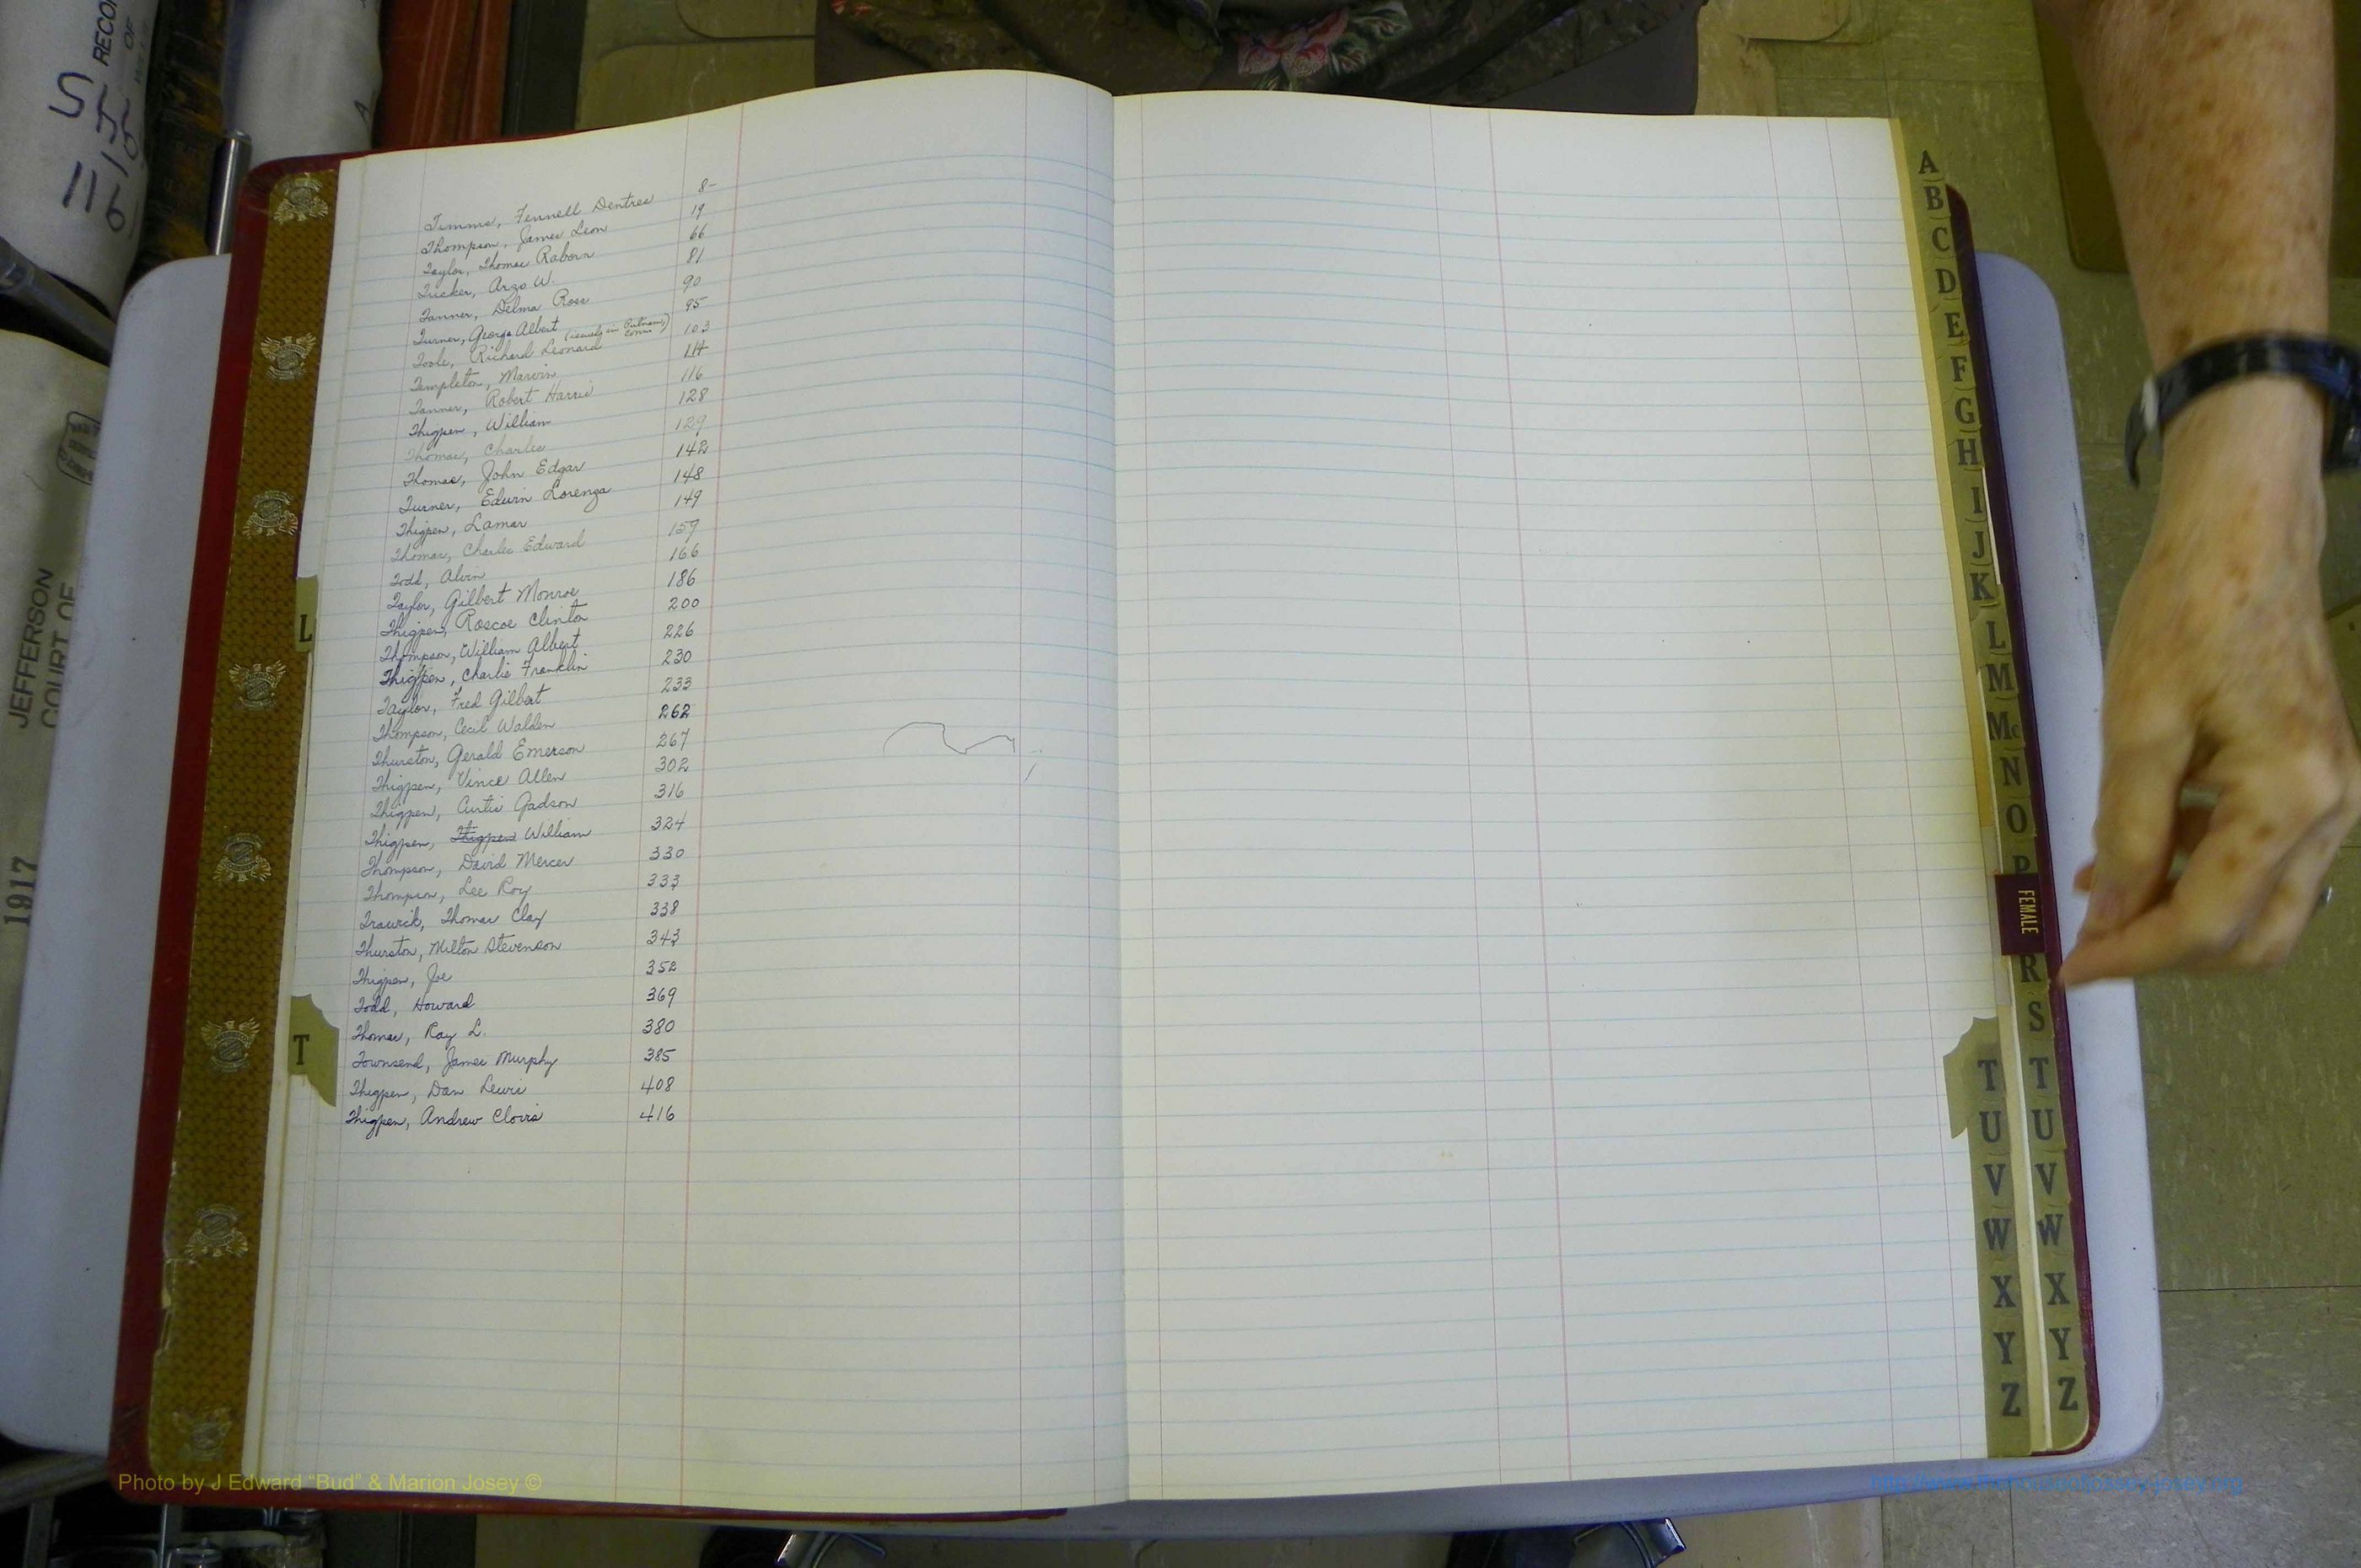 S
RECO
OF
11-15
6-16
A
JEFFERSON
COURT OF
1917
Timms, Fennell Dentree 8-
Thompson, James Leon 19
Taylor, Thomas Raborn 66
Tucker, Arzo W. 81
Tanner, Delma Ross 90
Turner, George Albert (issued in Putnam, Conn) 95
Toole, Richard Leonard 103
Templeton, Marvin 114
Tanner, Robert Harris 116
Thigpen, William 128
Thomas, Charles 129
Thomas, John Edgar 142
Turner, Edwin Lorenza 148
Thigpen, Lamar 149
Thomas, Charlie Edward 157
Todd, Alvin 166
Taylor, Gilbert Monroe 186
Thigpen, Roscoe Clinton 200
Thompson, William Albert 226
Thigpen, Charlie Franklin 230
Taylor, Fred Gilbert 233
Thompson, Cecil Walden 262
Thurston, Gerald Emerson 267
Thigpen, Vince Allen 302
Thigpen, Curtis Gadson 316
Thigpen, Thigpen William 324
Thompson, David Mercer 330
Thompson, Lee Roy 333
Trawick, Thomas Clay 338
Thurston, Milton Stevenson 343
Thigpen, Joe 352
Todd, Howard 369
Thomas, Ray L. 380
Townsend, James Murphy 385
Thigpen, Dan Lewis 408
Thigpen, Andrew Clovis 416
L
T
A
B
C
D
E
F
G
H
I
J
K
L
M
Mc
N
O
P
FEMALE
R
S
T
U
V
W
X
Y
Z
T
U
V
W
X
Y
Z
Photo by J Edward "Bud" & Marion Josey ©